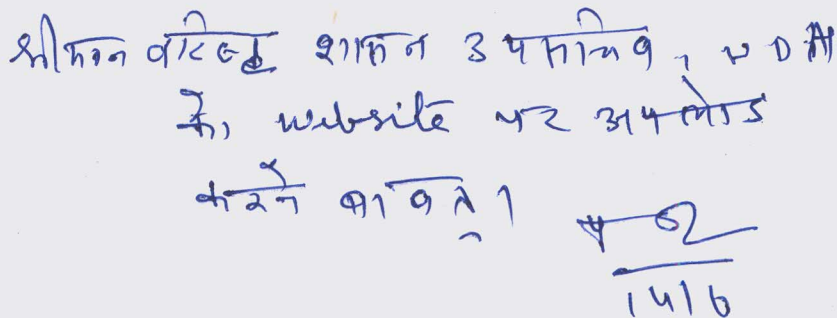 श्रीमान वरिष्ठ शासन उपसचिव, UDH
को website पर अपलोड
करने बाबत्।
15/6